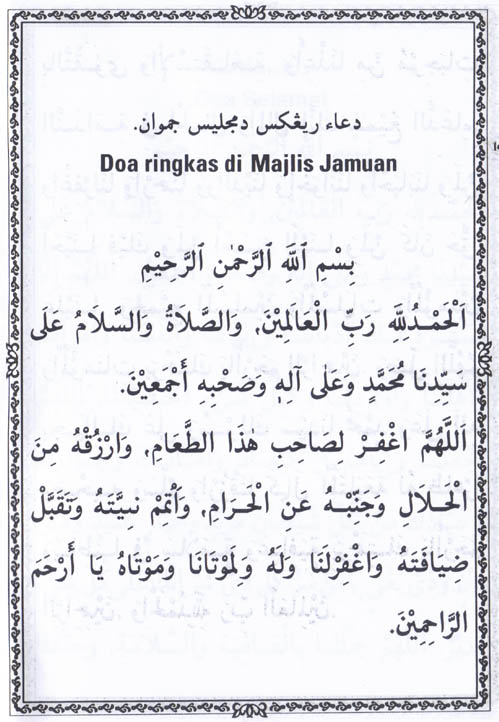 دعاء ريڠكس دمجليس جموان.
Doa ringkas di Majlis Jamuan
بِسْمِ ٱللَّهِ ٱلرَّحْمَٰنِ ٱلرَّحِيْمِ
اَلْحَمْدُلِلَّهِ رَبِّ الْعَالَمِيْنَ, وَالصَّلَاةُ وَالسَّلَامُ عَلَى
سَيِّدِنَا مُحَمَّدٍ وَعَلَى آلِهِ وَصَحْبِهِ أَجْمَعِيْنَ.
اَللَّهُمَّ اغْفِرْ لِصَاحِبِ هٰذَا الطَّعَامِ, وَارْزُقْهُ مِنَ
الْحَلَالِ وَجَنِّبْهُ عَنِ الْحَرَامِ, وَأَتْمِمْ نِيَّتَهُ وَتَقَبَّلْ
ضِيَافَتَهُ وَاغْفِرْلَنَا وَلَهُ وَلِمَوْتَانَا وَمَوْتَاهُ يَا أَرْحَمَ
الرَّاحِمِيْنَ.